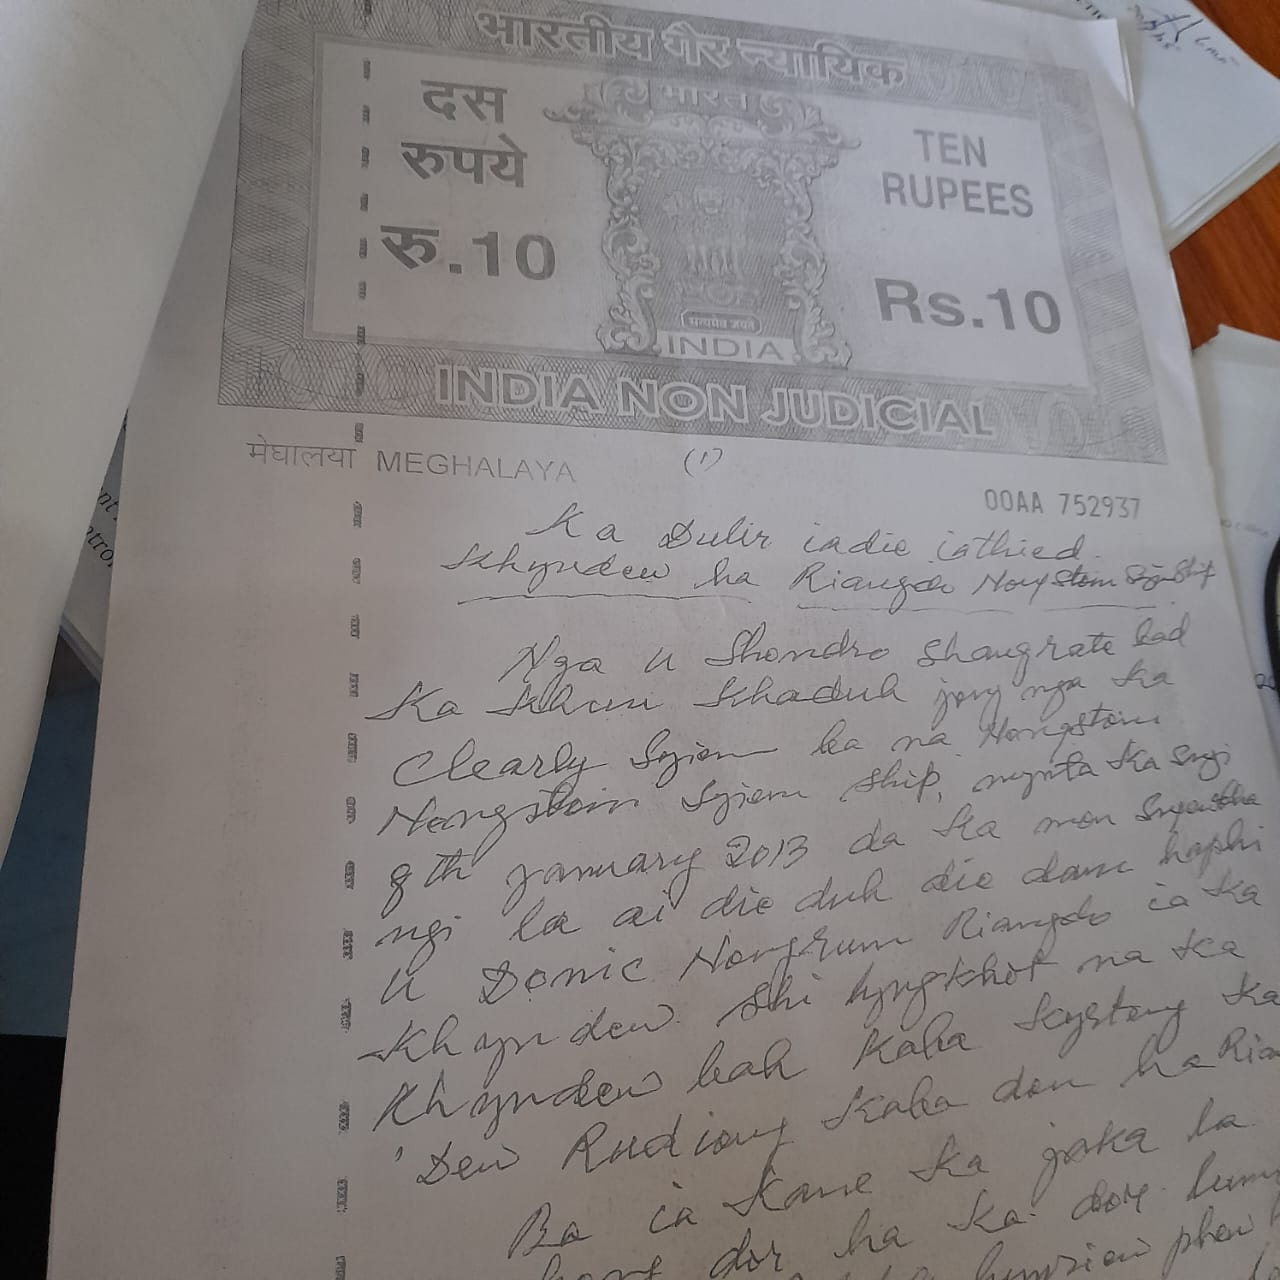 भारतीय गैर न्यायिक
दस
रुपये
रु.10
भारत
TEN
RUPEES
Rs.10
सत्यमेव जयते
INDIA
INDIA NON JUDICIAL
मेघालया MEGHALAYA
(1)
00AA 752937
Ka Dulir iadie iathied
Khyndew ha Riangdo Nongstoin Syiemship
Nga u Shondro Shangrate bad
Ka Khun Khaduh jong nga Ka
Clearly Syiem ba na Nongstoin
Nongstoin Syiem Ship, mynta Ka Sngi
8th January 2013 da Ka mon
ngi la ai die duh die dam haphi
u Donic Nongrum Riangdo ia Ka
Khyndew shi lyngkhot na Ka
Khyndew bah Kaba Kyrteng Ka
'Dew Rudiang Kaba don ha
Ba ia Kane Ka jaka la
dor ha Ka dor
phew